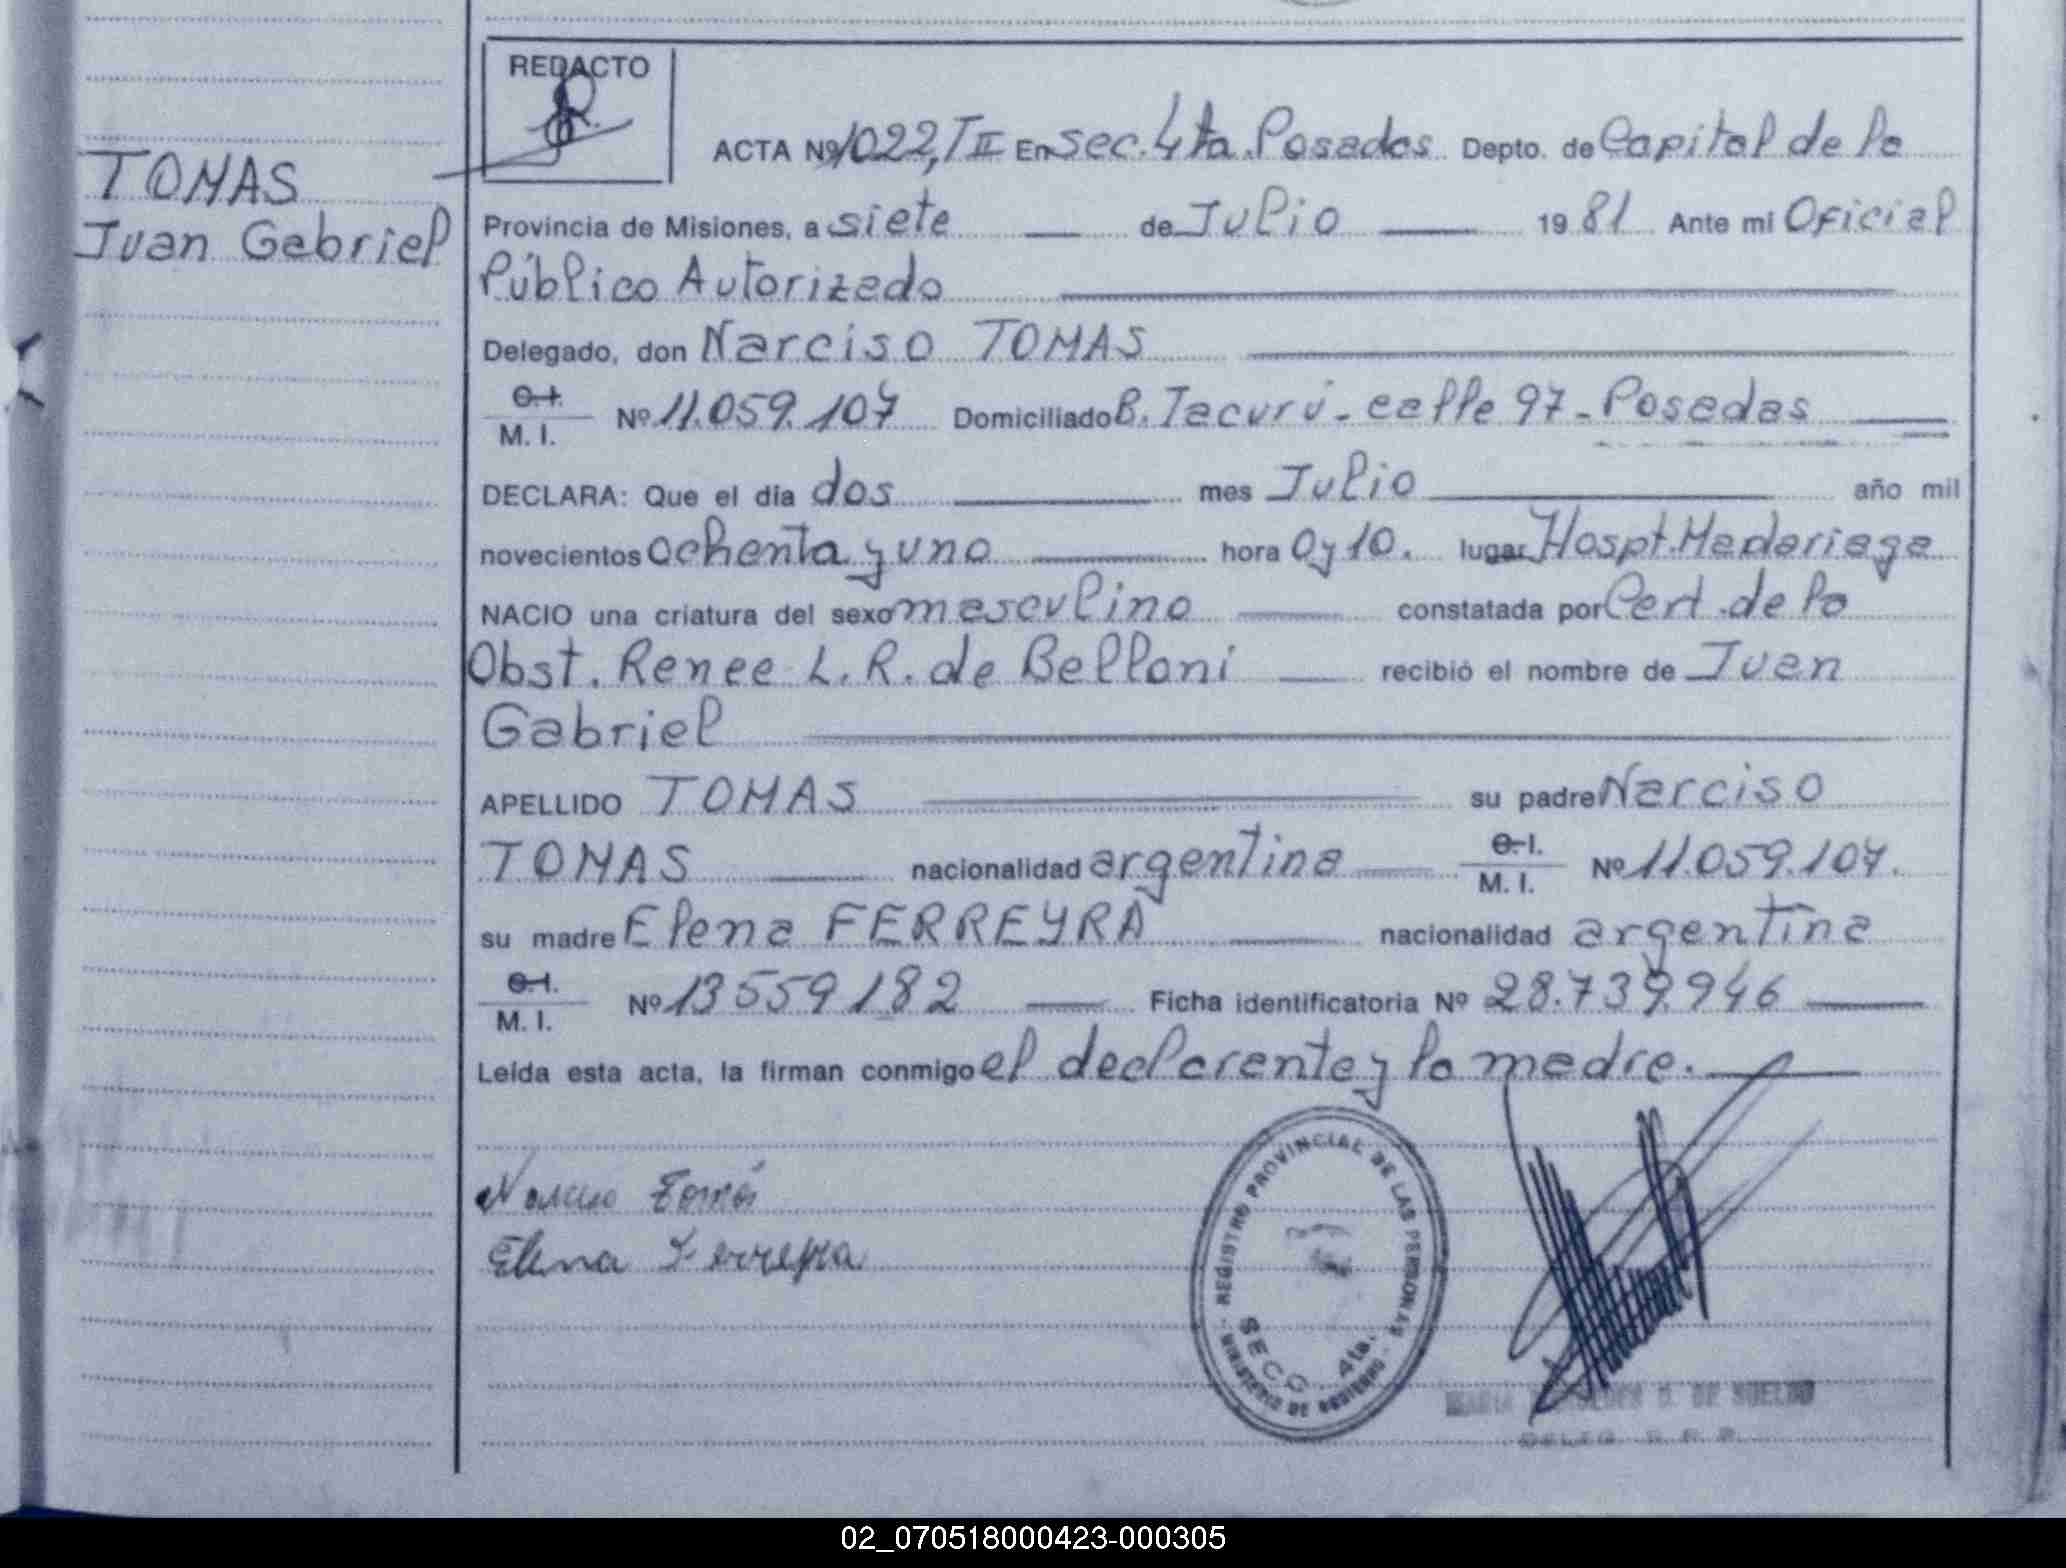 REDACTO
TOMAS
Juan Gabriel
ACTA Nº 1022, T II En Sec. 4ta. Posadas Depto. de Capital de la
Provincia de Misiones, a siete de Julio 19 81 Ante mi Oficial
Público Autorizado
Delegado, don Narciso TOMAS
C.I.
M. I. Nº 11.059.107 Domiciliado B. Tacurú - calle 97 - Posadas
DECLARA: Que el dia dos mes Julio año mil
novecientos ochenta y uno hora 0 y 10. lugar Hospt. Madariaga
NACIO una criatura del sexo masculino constatada por Cert. de la
Obst. Renee L. R. de Belloni recibió el nombre de Juan
Gabriel
APELLIDO TOMAS su padre Narciso
TOMAS nacionalidad argentina C.I. M. I. Nº 11.059.107.
su madre Elena FERREYRA nacionalidad argentina
C.I.
M. I. Nº 13559182 Ficha identificatoria Nº 28.739.946
Leída esta acta, la firman conmigo el declarante y la madre.
Narciso Tomás
Elena Ferreyra
REGISTRO PROVINCIAL DE LAS PERSONAS
- MINISTERIO DE GOBIERNO -
SECC. 4ta.
MARIA D. DE SUELDO
DELEG. R. P. P.
02_070518000423-000305